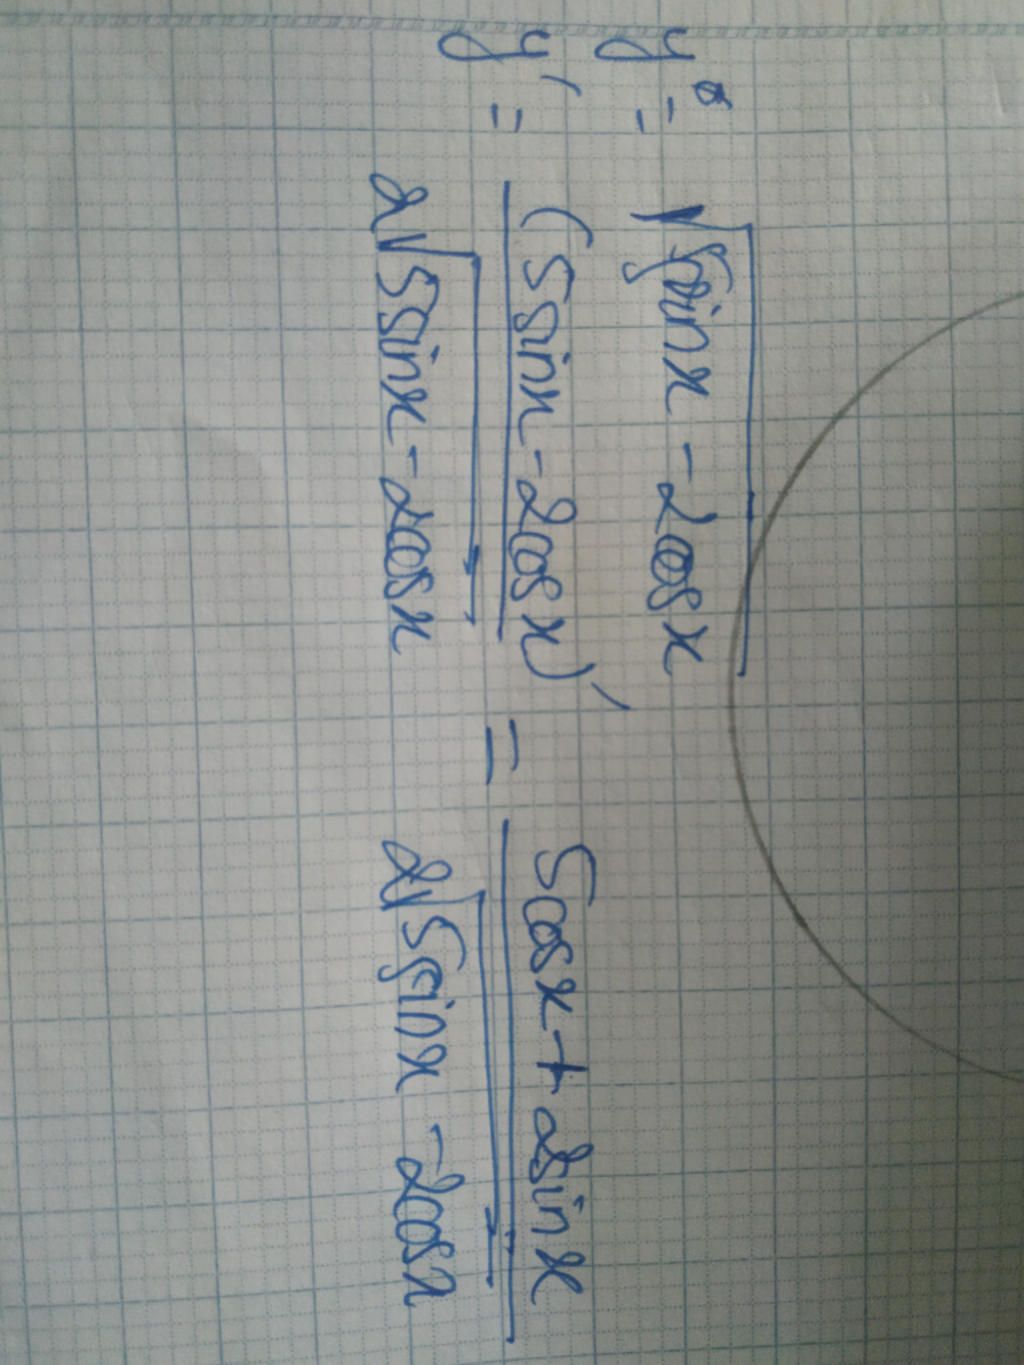 y = √(5sinx - 2cosx)
y' = (5sinx - 2cosx)' / 2√(5sinx - 2cosx) = 5cosx + 2sinx / 2√(5sinx - 2cosx)